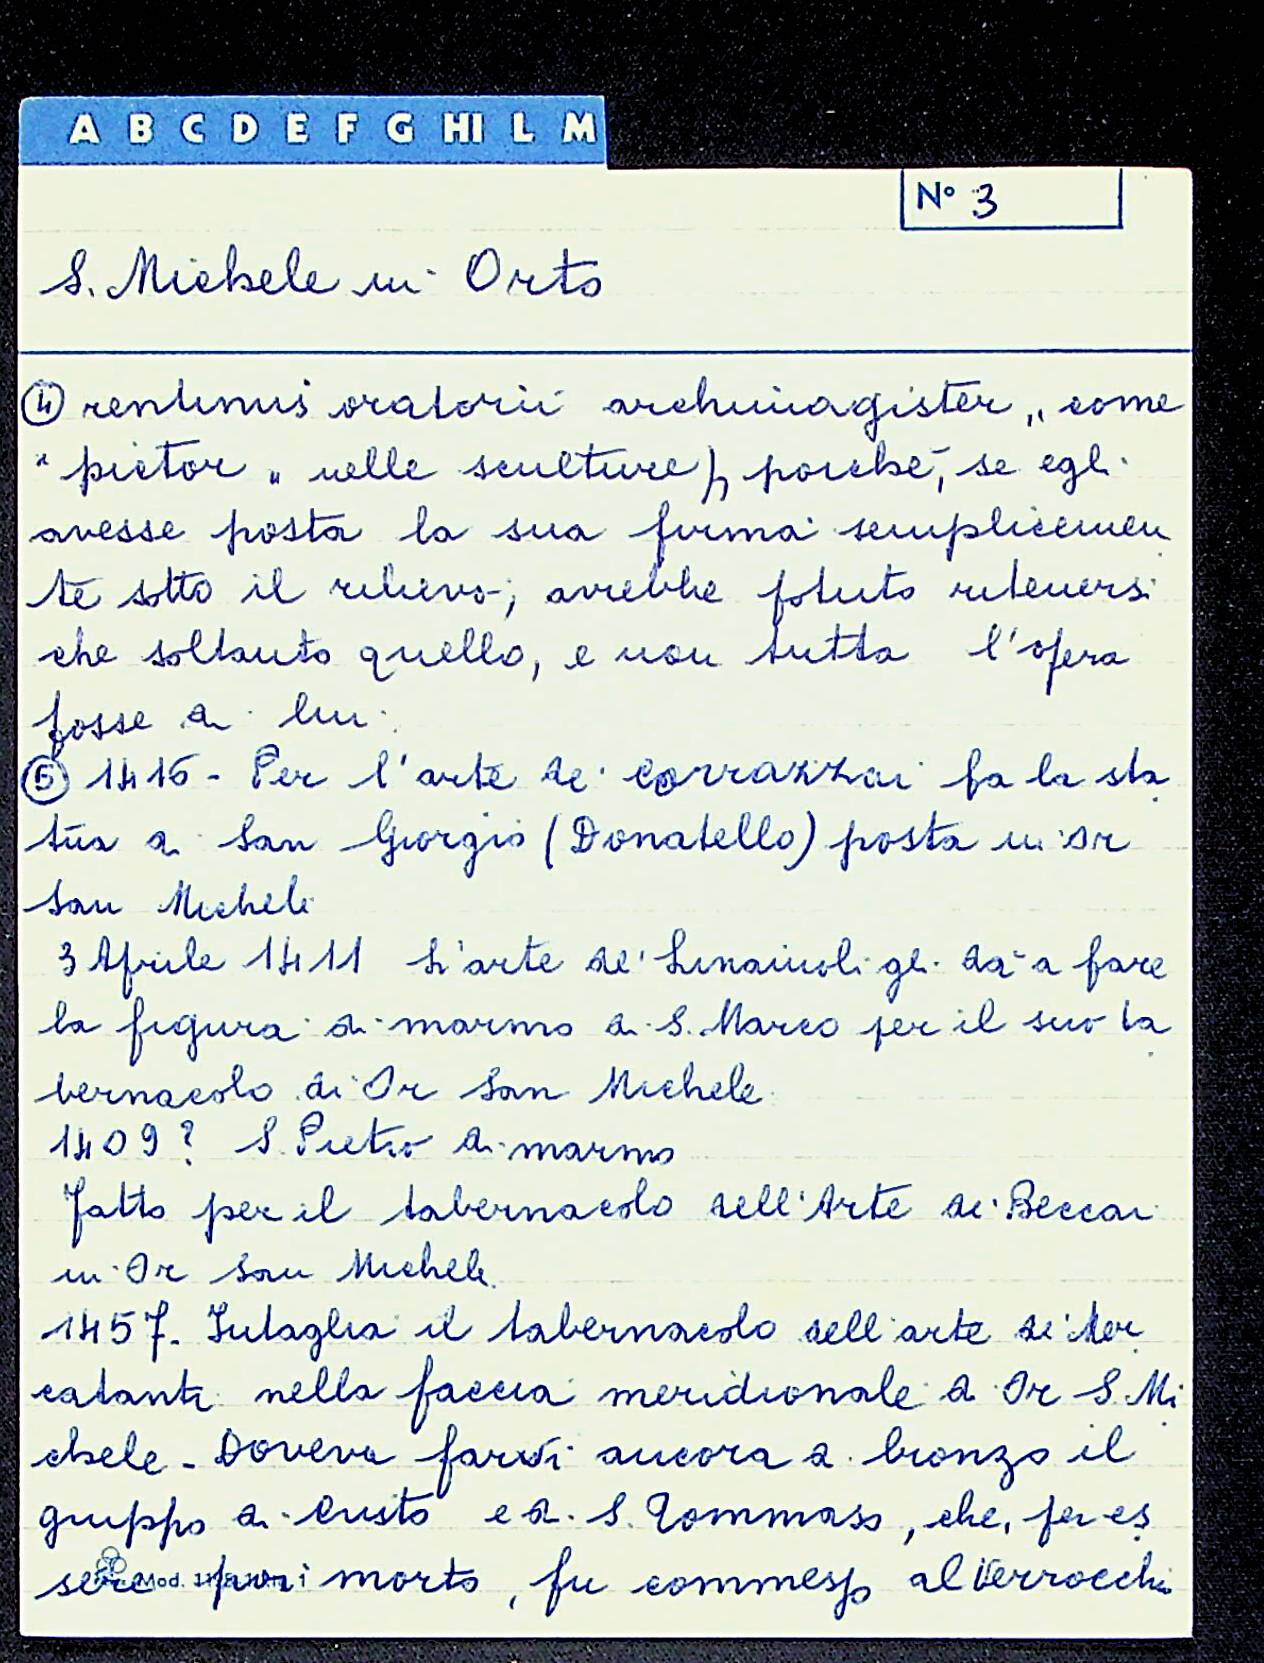 A B C D E F G HI L M
N° 3
S. Michele in Orto
④ rentinus oratorii archimagister „ come
“ pictor „ nelle sculture), poiché, se egli
avesse posta la sua firma semplicemen
te sotto il rilievo, avrebbe potuto ritenersi
che soltanto quello, e non tutta l'opera
fosse di lui.
⑤ 1416 - Per l'arte de' corrazzai fa la sta
tua di San Giorgio (Donatello) posta in Or
San Michele
3 Aprile 1411 L'arte de' Linaiuoli gli dà a fare
la figura di marmo di S. Marco per il suo ta
bernacolo di Or San Michele.
1409? S. Pietro di marmo
Fatto per il tabernacolo dell'Arte de' Beccai
in Or San Michele.
1457. Intaglia il tabernacolo dell'arte de' Mer
catanti nella faccia meridionale di Or S. Mi
chele - Doveva farvi ancora di bronzo il
gruppo di Cristo e di S. Tommaso, che, per es
sere morto, fu commesso al Verrocchio
Mod.